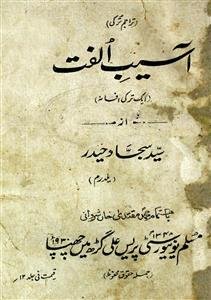 (تراجم ترکی)
آسیبِ اُلفت
(ایک ترکی افسانہ)
از
سیّد سجاد حیدر
(یلدرم)
باہتمام محمد مقتدیٰ خاں شروانی
مسلم یونیورسٹی پریس علی گڑھ میں چھپا
۱۹۳۰ء
(جملہ حقوق محفوظ)
قیمت فی جلد ۱۲